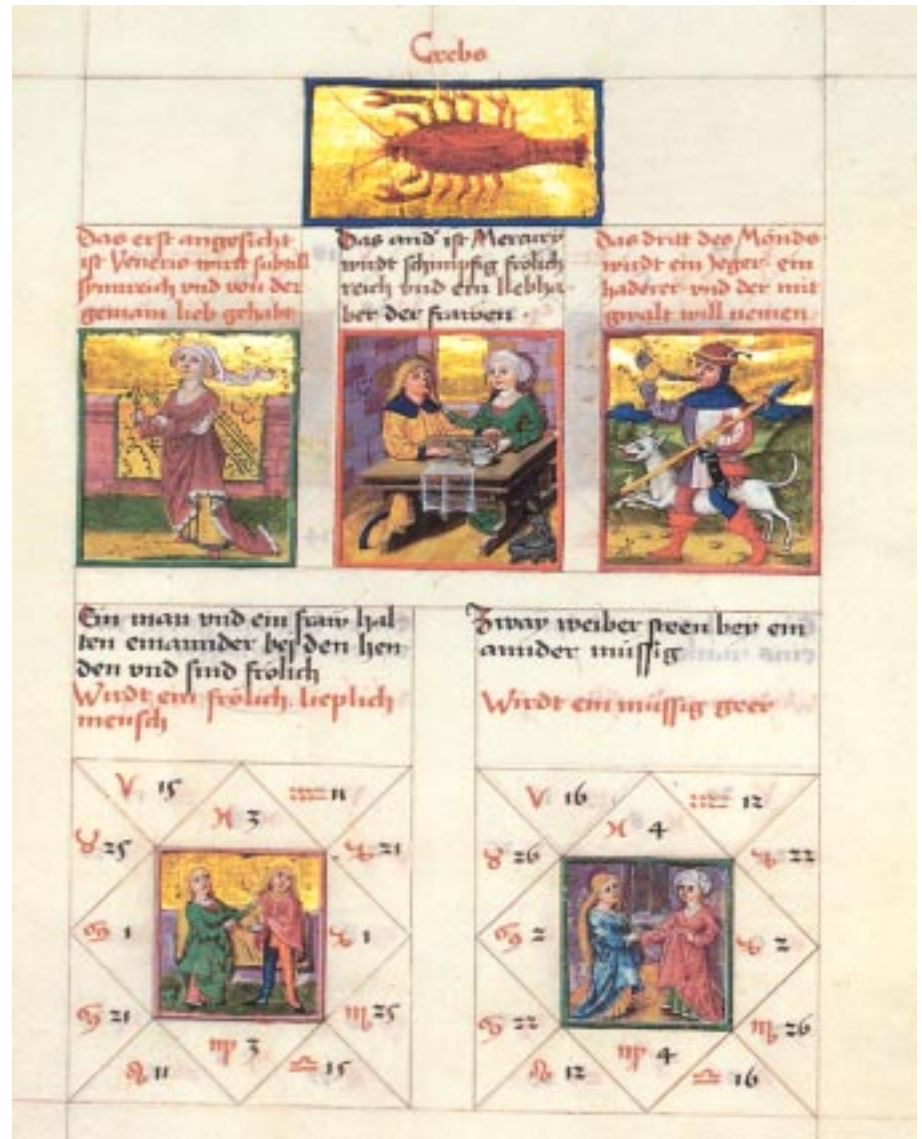 Crebs
Das erst angesicht
ist Veneris wirdt subtill
synnreich vnd von der
gemain lieb gehabt
Das and' ist Mercury
wirdt schimpfig frölich
reich vnd ein liebha
ber der frawen .
Das dritt des Monds
wirdt ein Jeger ein
haderer vnd der mit
gwalt will nemen
Ein man vnd ein fraw hal
ten einannder bej den hen
den vnd sind frölich
Wirdt ein frölich lieplich
mensch
♈ 15
♓ 3
♒ 11
♉ 25
♑ 21
♋ 1
♑ 1
♋ 21
♏ 25
♌ 11
♍ 3
♎ 15
Zway weiber steen bey ein
annder müssig
Wirdt ein müssig geer
♈ 16
♓ 4
♒ 12
♉ 26
♑ 22
♋ 2
♑ 2
♋ 22
♏ 26
♌ 12
♍ 4
♎ 16